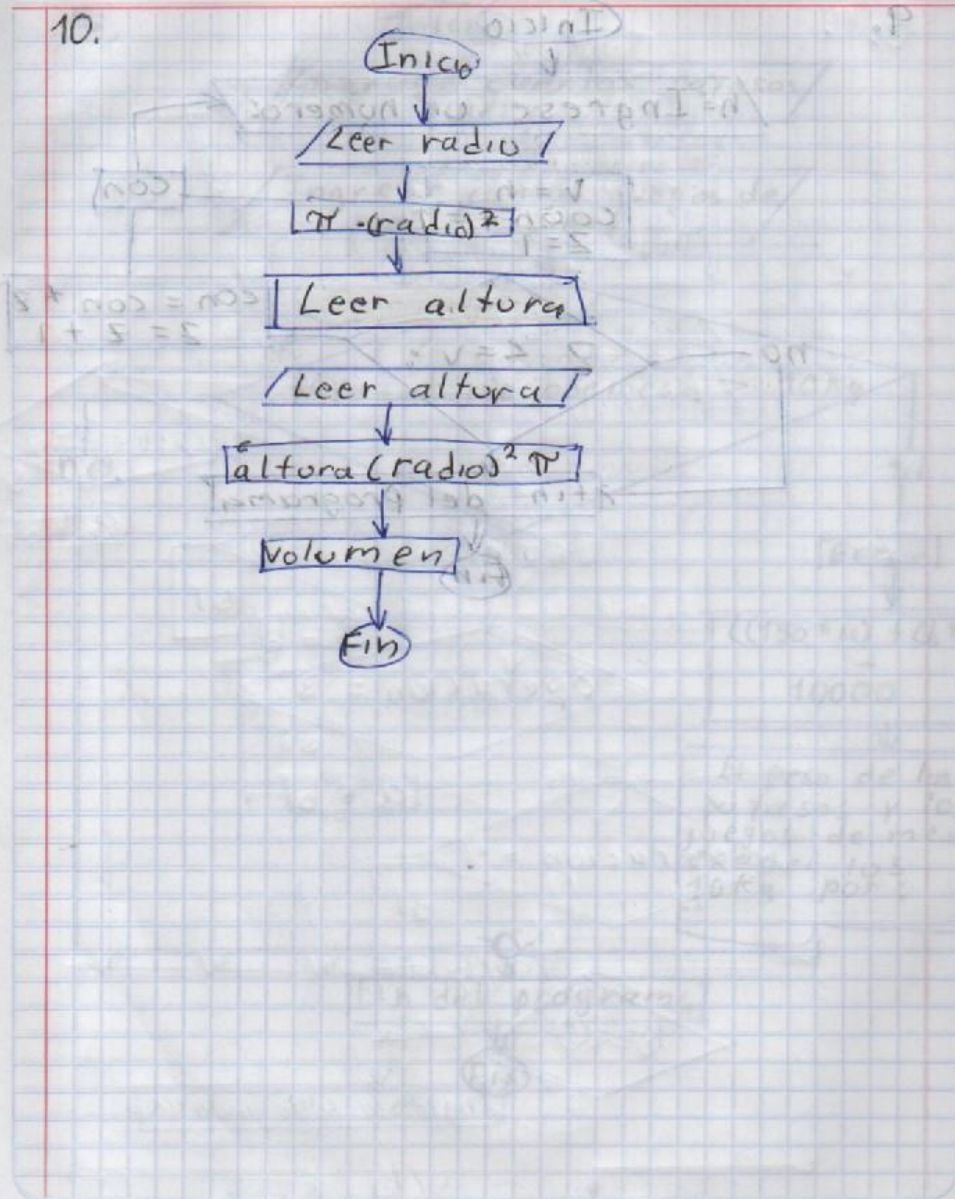 10.
Inicio
Leer radio
π · (radio)²
Leer altura
Leer altura
altura (radio)² π
Volumen
Fin